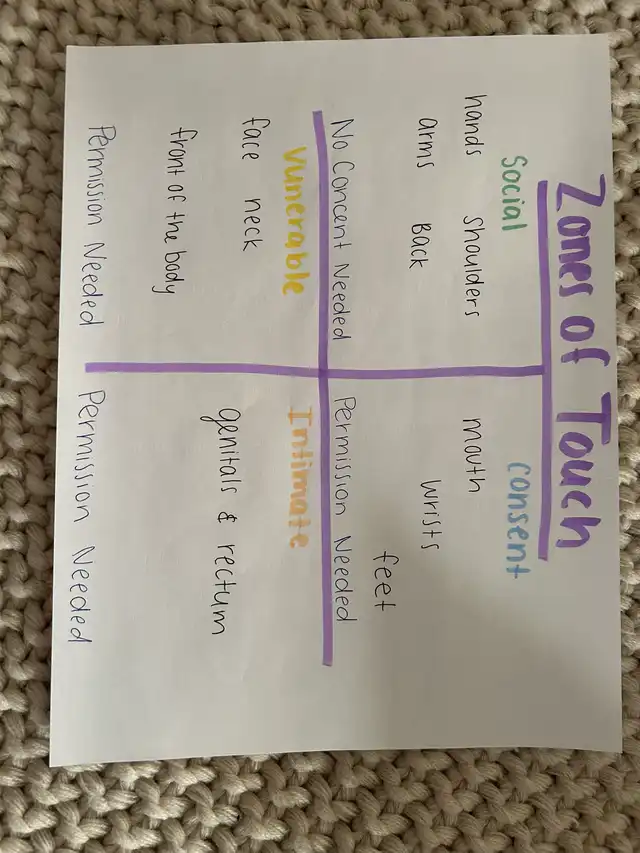 Zones of Touch
Social
hands shoulders
arms Back
No Concent Needed
consent
mouth
wrists
feet
Permission Needed
Vunerable
face neck
front of the body
Permission Needed
Intimate
genitals & rectum
Permission Needed